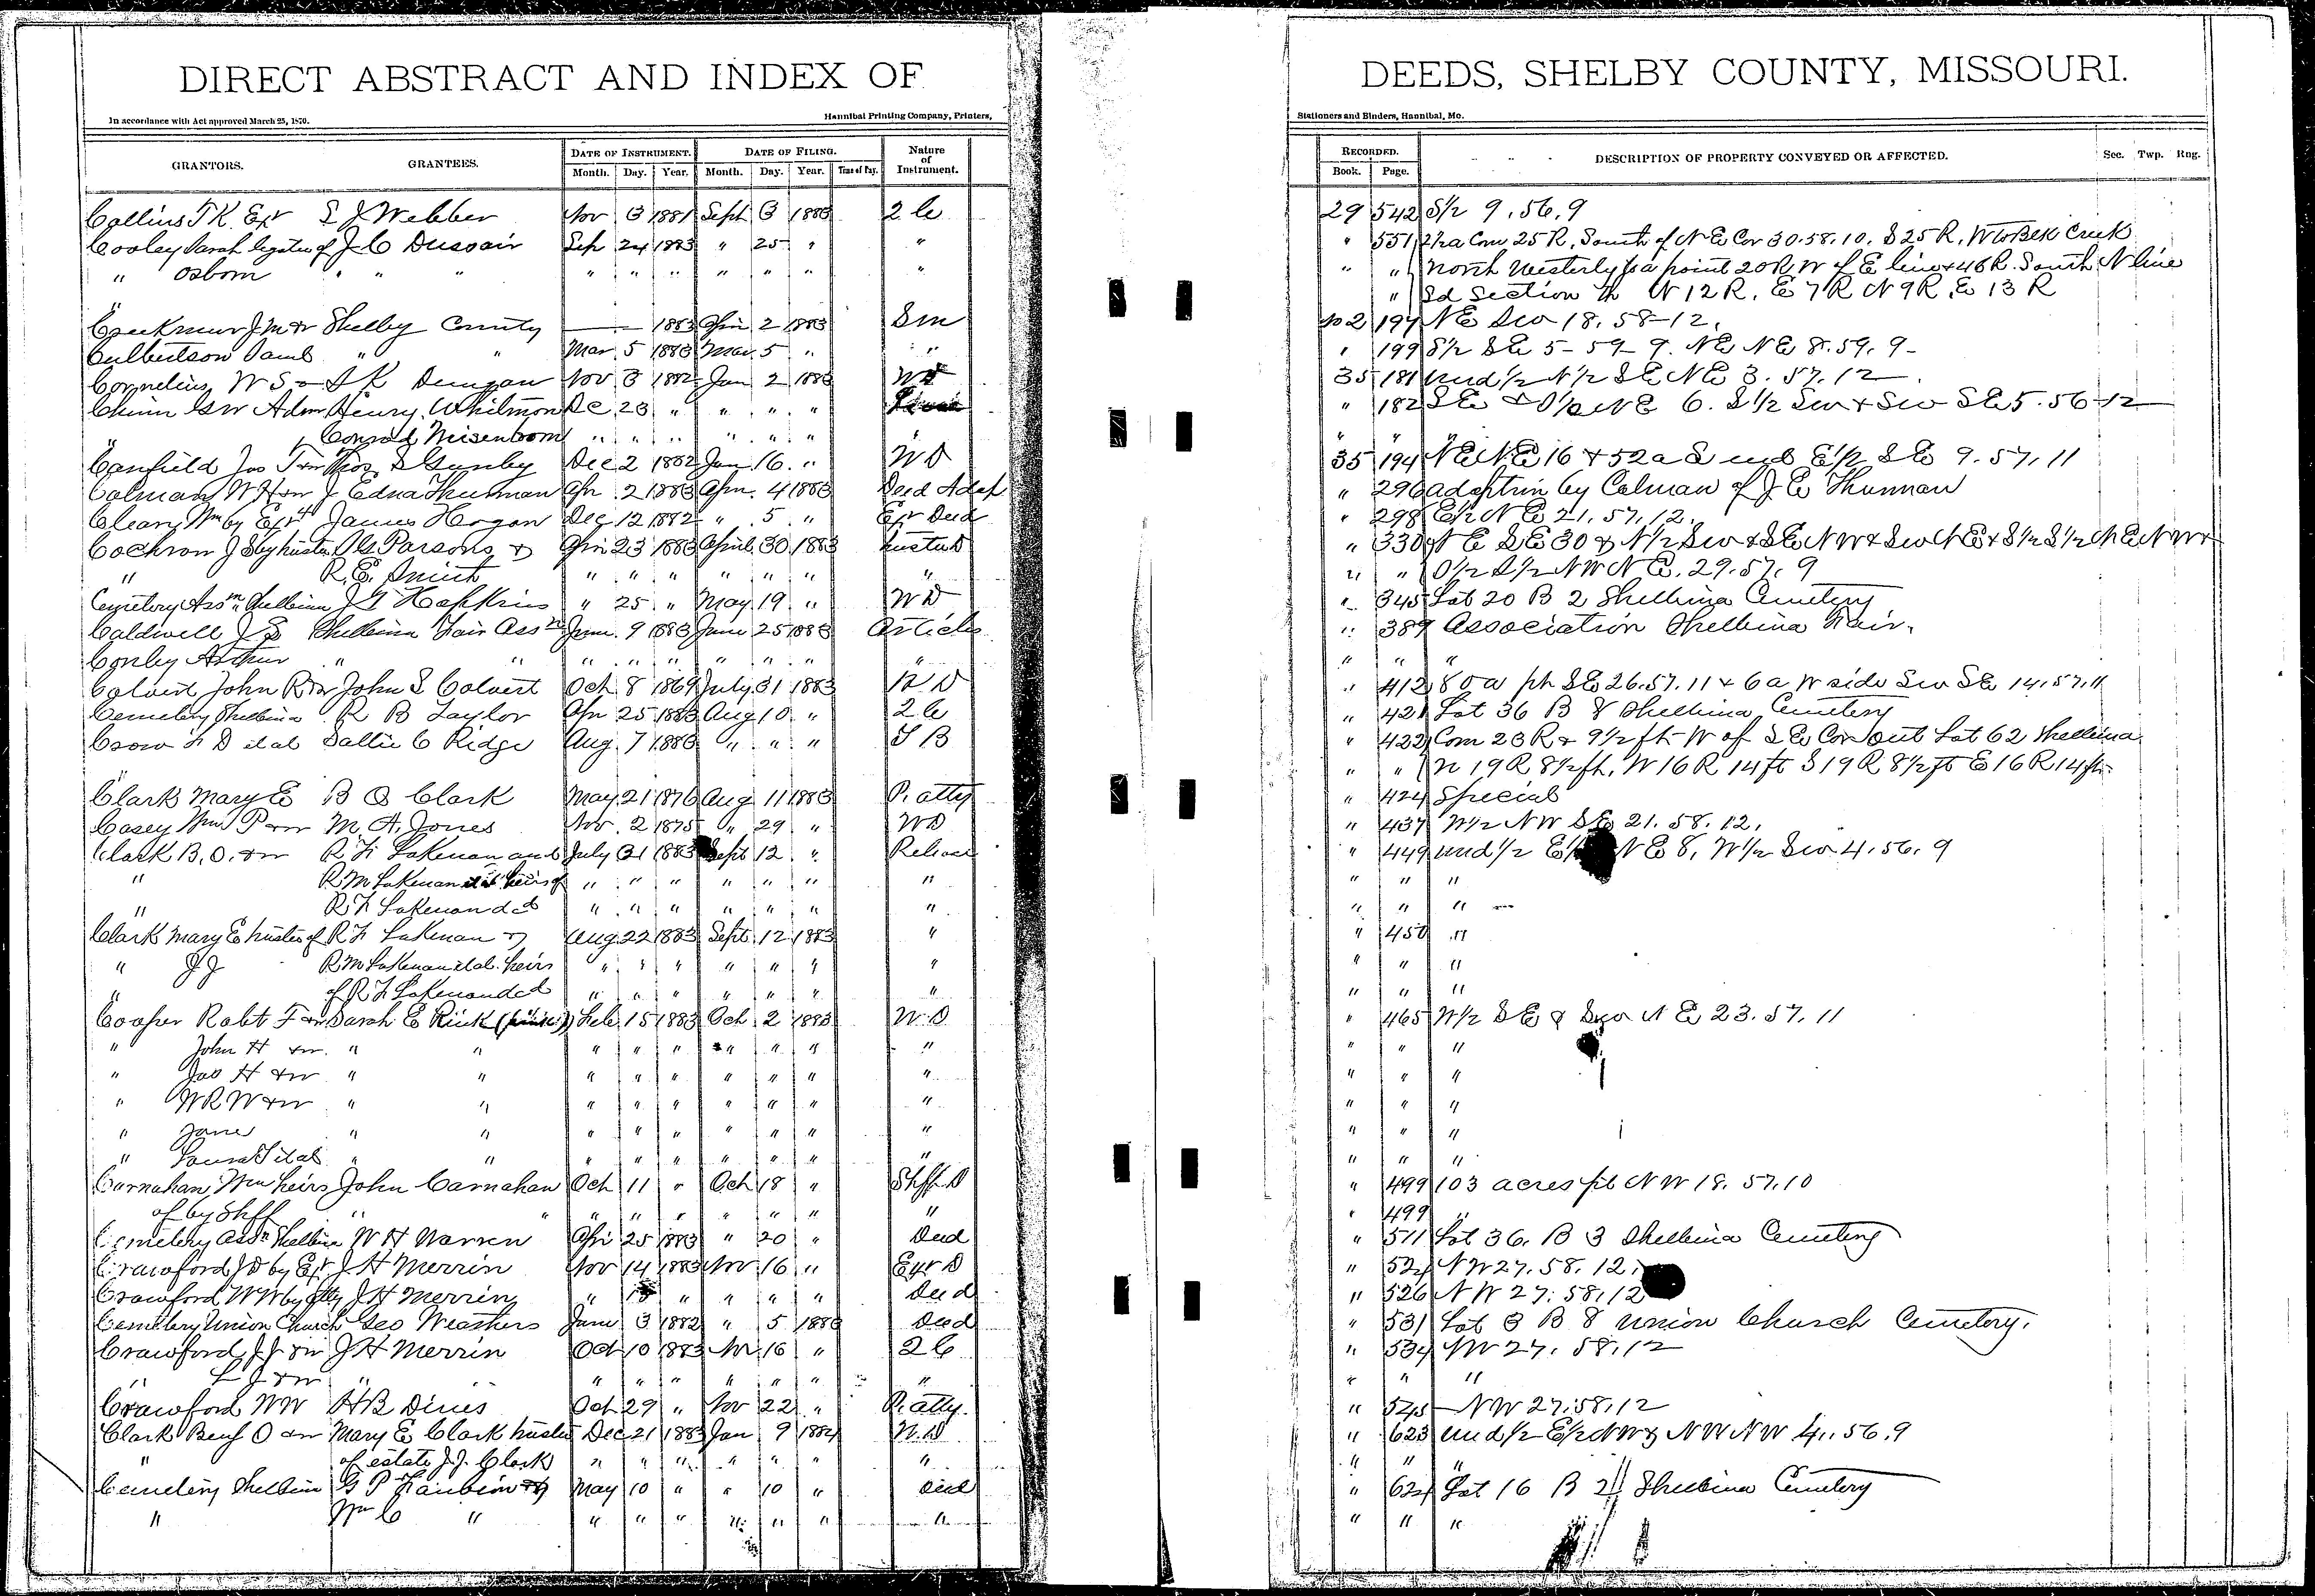 DIRECT ABSTRACT AND INDEX OF DEEDS, SHELBY COUNTY, MISSOURI.
In accordance with Act approved March 25, 1870. Hannibal Printing Company, Printers, Stationers and Binders, Hannibal, Mo.
DATE OF INSTRUMENT. DATE OF FILING. Nature of Instrument. RECORDED.
GRANTORS. GRANTEES. Month. Day. Year. Month. Day. Year. Book. Page. DESCRIPTION OF PROPERTY CONVEYED OR AFFECTED. Sec. Twp. Rng.
Collins T K Exr S J Webber Nov 3 1881 Sept 3 1883 2 C 29 542 S½ 9.56.9
Cooley Sarah legatee of J C Dussair Sep 24 1883 " 25 " " " 551 2½a Com 25 R. South of N E Cor 30.58.10. S 25 R, W to Creek
" Osborn " " " " " " " " " " " " North Westerly to a point 20 R W of E line & 46 R. South N line
" " Sd Section N 12 R. E 7 R N 9 R. E 13 R
J M & W Shelby County 1883 Apr 2 1883 Sm 2 197 N E Sw 18. 58-12.
Culbertson " " Mar 5 1883 Mar 5 " " " 199 S½ S E 5-59-9. NE NE 8.59.9-
Cornelius W S & S K Dungan Nov 3 1882 Jan 2 1883 W D 35 181 und ½ N½ S E N E 3. 57.12
Chinn G W Adm Henry Whitmon De 23 " " " " " 182 6. S½ Sw & Sw SE 5.56-12
" Conrad Misenboom " " " " " " " " "
Canfield Jas T & W Thos S Gunby Dec 2 1882 Jan 16 " W D 35 194 NE NE 16 & 52a S end E½ S E 9.57.11
Calman W H & W J Edna Thurman Apr 2 1883 Apr 4 1883 Deed Adop " 296 adoption by Calman of J E Thurman
Cleary Wm by Exr James Hogan Dec 12 1882 " 5 " Exr Deed " 298 E½ N E 21.57.12.
Cochron J S by trustee Parsons & Apr 23 1883 April 30 1883 trustee D " 330 N E S E 30 & N½ Sw & S E N W & Sw N E & S½ S½ N E N W &
" R. E. Smith " " " " " " " " " S½ N W N E. 29.57.9
Cemetery Assn Shelbina J G Hopkins " 25 " May 19 " W D " 345 Lot 20 B 2 Shelbina Cemetery
Caldwell J E Shelbina Fair Assn June 9 1883 June 25 1883 Articles " 389 Association Shelbina Fair.
Conley Arthur " " " " " " " " " " " "
Calvert John R & W John S Calvert Oct 8 1869 July 31 1883 W D " 412 80a pt S E 26.57.11 & 6a W side Sw S E 14.57.11
Cemetery Shelbina R B Taylor Apr 25 1883 Aug 10 " 2 C " 421 Lot 36 B 8 Shelbina Cemetery
Crow F D et al Sallie C Ridge Aug 7 1883 " " " T B " 422 Com 23 R & 9½ ft W of S E Cor out Lot 62 Shelbina
" " " N 19 R 8½ ft, W 16 R 14 ft S 19 R 8½ ft E 16 R 14 ft
Clark Mary E B O Clark May 21 1876 Aug 11 1883 P. atty " 424 Special
Casey Wm P & W M. A. Jones Nov 2 1875 " 29 " W D " 437 W½ NW S E 21. 58. 12.
Clark B. O. & W R. F. Lakenan and July 31 1883 Sept 12 " Release " 449 und ½ E½ N E 8, W½ Sw 4.56.9
" R M Lakenan et al heirs of " " " " " " " " " "
" R F Lakenan decd " " " " " " " " " "
Clark Mary E trustee of R F Lakenan & Aug 22 1883 Sept 12 1883 " " 450 "
" J J R M Lakenan et al. heirs " " " " " " " " " "
" of R F Lakenan decd " " " " " " " " " "
Cooper Robt F & W Sarah E Rink Feb 15 1883 Oct 2 1883 W D " 465 W½ S E & Sw N E 23.57.11
" John H & W " " " " " " " " " " " "
" Jas H & W " " " " " " " " " " " "
" W R W & W " " " " " " " " " " " "
" Jane " " " " " " " " " " " "
" Laura T et al " " " " " " " " " " " "
Carnahan Wm heirs John Carnahan Oct 11 " Oct 18 " Shff D " 499 103 acres pt N W 18.57.10
of by Shff " " " " " " " " " " 499 "
Cemetery Assn Shelbina W H Warren Apr 25 1883 " 20 " Deed " 511 Lot 36. B 3 Shelbina Cemetery
Crawford J D by Exr J H Merrin Nov 14 1883 Nov 16 " Exr D " 524 N W 27.58.12.
Crawford W W by atty J H Merrin " " " " " Deed " 526 N W 27.58.12
Cemetery Union Church Geo Weathers June 3 1882 " 5 1883 Deed " 531 Lot 3 B 8 Union Church Cemetery.
Crawford J J & W J H Merrin Oct 10 1883 Nov 16 " 2 C " 534 NW 27.58.12
" L J & W " " " " " " " " " " "
Crawford W W H B Dines Oct 29 " Nov 22 " P. atty. " 545 N W 27.58.12
Clark Benj O & W Mary E Clark trustee Dec 21 1883 Jan 9 1884 W. D " 623 und ½ E½ N W & N W N W 4.56.9
" of estate J. J. Clark " " " " " " " " " "
Cemetery Shelbina G P & May 10 " " 10 " Deed " 624 Lot 16 B 2 Shelbina Cemetery
" Wm C " " " " " " " " " " "